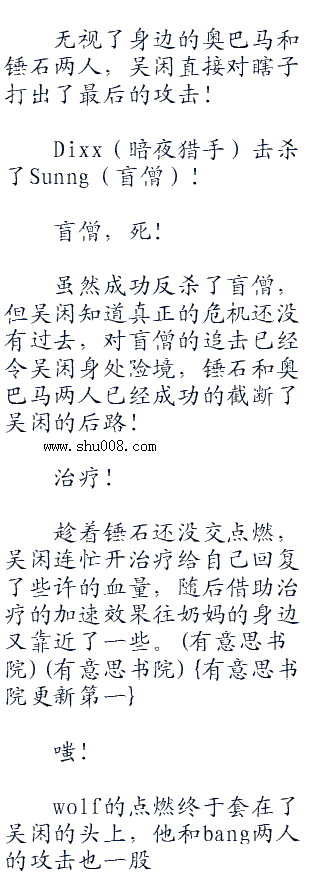 无视了身边的奥巴马和
锤石两人，吴闲直接对瞎子
打出了最后的攻击！
Dixx（暗夜猎手）击杀
了Sunng（盲僧）！
盲僧，死！
虽然成功反杀了盲僧，
但吴闲知道真正的危机还没
有过去，对盲僧的追击已经
令吴闲身处险境，锤石和奥
巴马两人已经成功的截断了
吴闲的后路！
www.shu008.com
治疗！
趁着锤石还没交点燃，
吴闲连忙开治疗给自己回复
了些许的血量，随后借助治
疗的加速效果往奶妈的身边
又靠近了一些。(有意思书
院)(有意思书院){有意思书
院更新第一}
嗤！
wolf的点燃终于套在了
吴闲的头上，他和bang两人
的攻击也一股